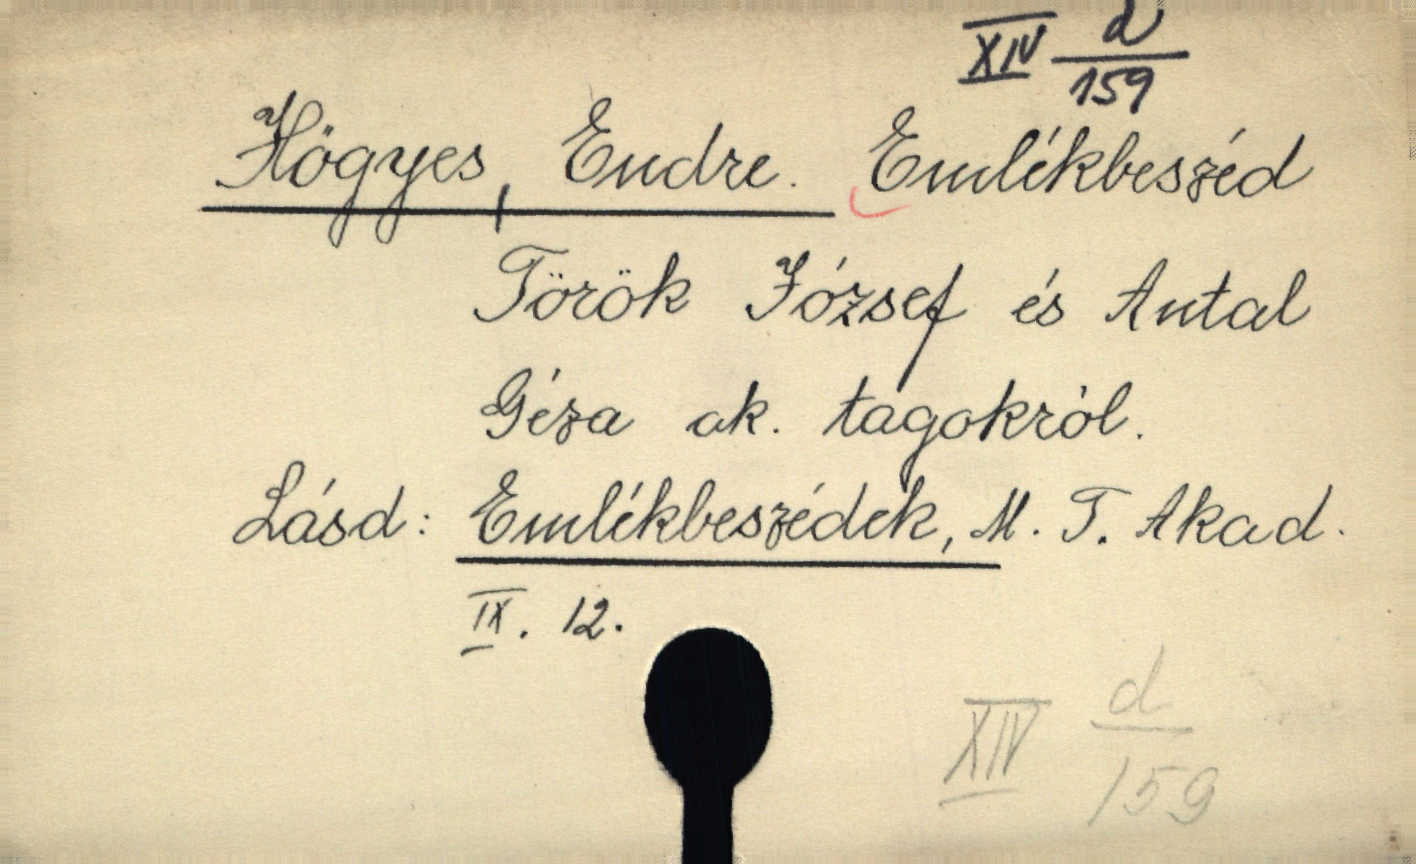 XIV d/159
Högyes, Endre. Emlékbeszéd
Török József és Antal
Géza ak. tagokról.
Lásd: Emlékbeszédek, M. T. Akad.
IX. 12.
XIV d/159